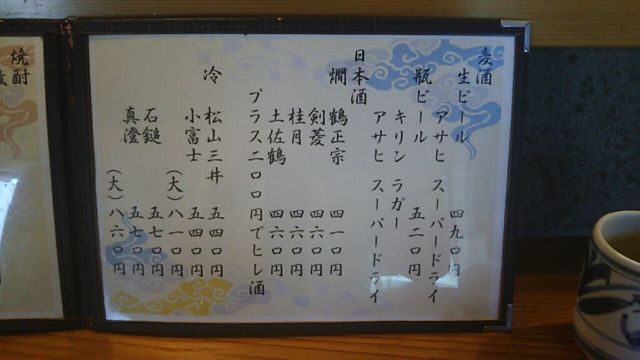 麦酒
生ビール 四九〇円
アサヒ スーパードライ
瓶ビール 五二〇円
キリン ラガー
アサヒ スーパードライ
日本酒
燗 鶴正宗 四一〇円
剣菱 四六〇円
桂月 四六〇円
土佐鶴 四六〇円
プラス二〇〇円でヒレ酒
冷 松山三井 五四〇円
小富士 五四〇円
(大) 八一〇円
石鎚 五七〇円
真澄 五七〇円
(大) 八六〇円
焼酎